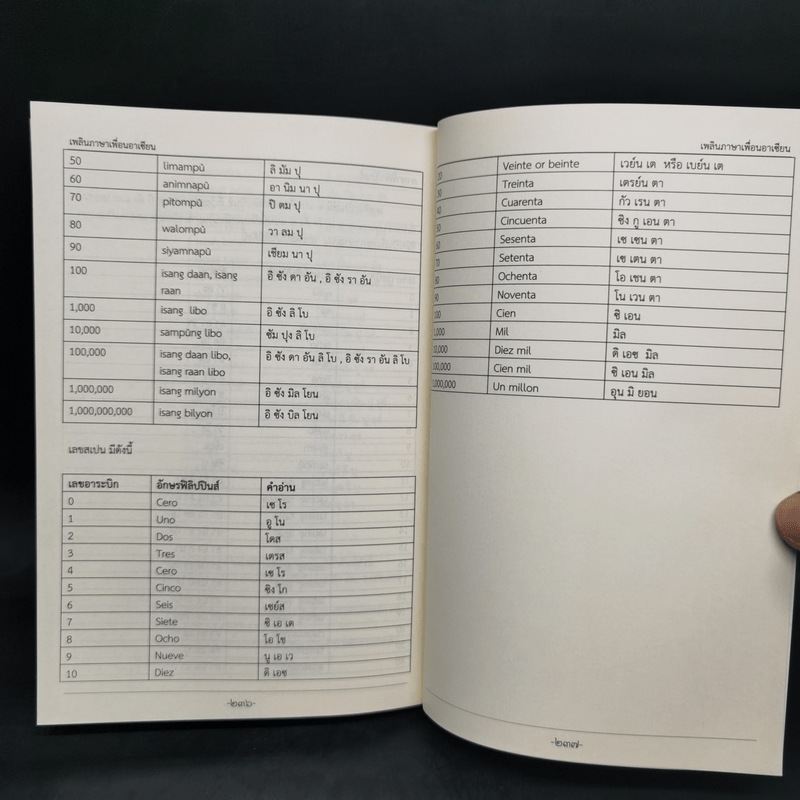 เพลินภาษาเพื่อนอาเซียน
50 limampû ลิ มัม ปุ
60 animnapû อา นิม นา ปุ
70 pitompû ปิ ตม ปุ
80 walompû วา ลม ปุ
90 siyamnapû เซียม นา ปุ
100 isang daan, isang raan อิ ซัง ดา อัน , อิ ซัง รา อัน
1,000 isang libo อิ ซัง ลิ โบ
10,000 sampûng libo ซัม ปุง ลิ โบ
100,000 isang daan libo, isang raan libo อิ ซัง ดา อัน ลิ โบ , อิ ซัง รา อัน ลิ โบ
1,000,000 isang milyon อิ ซัง มิล โยน
1,000,000,000 isang bilyon อิ ซัง บิล โยน
เลขสเปน มีดังนี้
เลขอาระบิก อักษรฟิลิปปินส์ คำอ่าน
0 Cero เซ โร
1 Uno อู โน
2 Dos โดส
3 Tres เตรส
4 Cero เซ โร
5 Cinco ซิง โก
6 Seis เซย์ส
7 Siete ซิ เอ เต
8 Ocho โอ โช
9 Nueve นู เอ เว
10 Diez ดิ เอซ
-๒๓๖-
เพลินภาษาเพื่อนอาเซียน
20 Veinte or beinte เวย์น เต หรือ เบย์น เต
30 Treinta เตรย์น ตา
40 Cuarenta กัว เรน ตา
50 Cincuenta ซิง กู เอน ตา
60 Sesenta เซ เซน ตา
70 Setenta เซ เตน ตา
80 Ochenta โอ เชน ตา
90 Noventa โน เวน ตา
100 Cien ซิ เอน
,000 Mil มิล
0,000 Diez mil ดิ เอซ มิล
00,000 Cien mil ซิ เอน มิล
,000,000 Un millon อุน มิ ยอน
-๒๓๗-